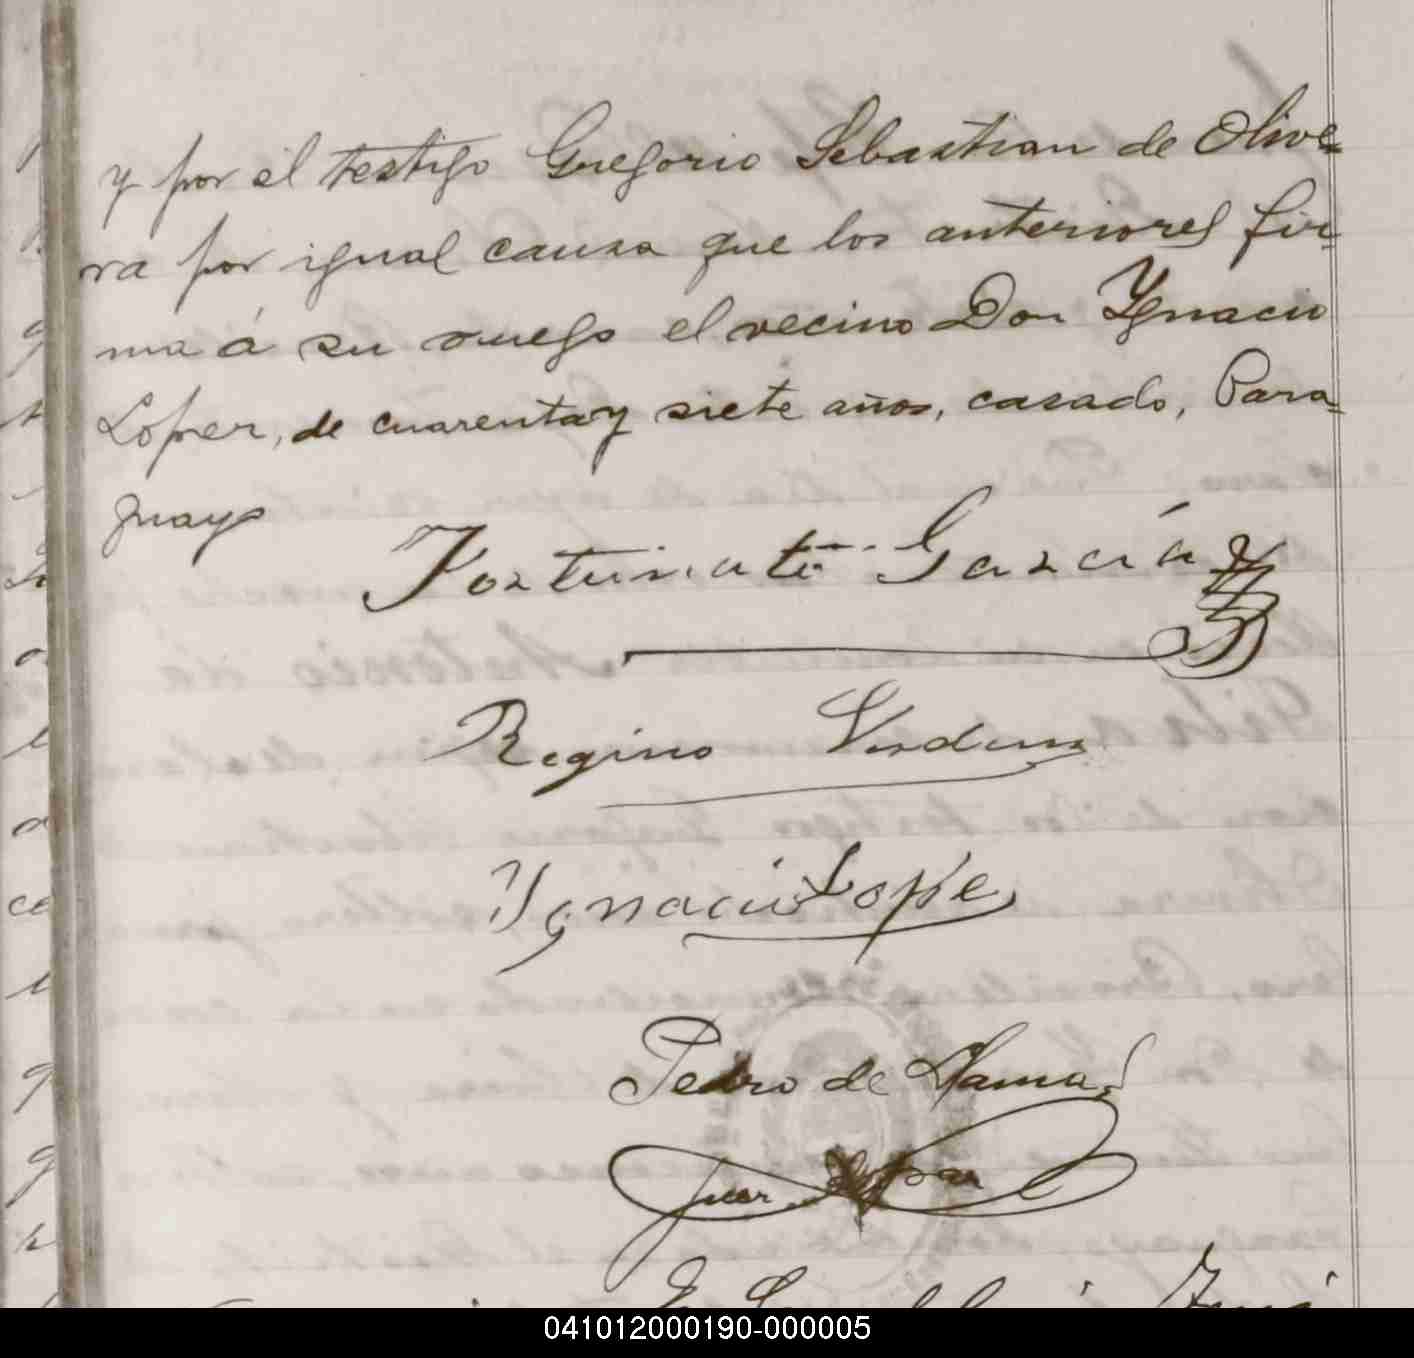 y por el testigo Gregorio Sebastian de Olive-
ra por igual causa que los anteriores fir-
ma á su ruego el vecino Don Ygnacio
Loper, de cuarenta y siete años, casado, Para-
guayo
Fortunato García
Regino Verdun
Ygnacio Lope
Pedro de Llamas
Juez de paz
041012000190-000005